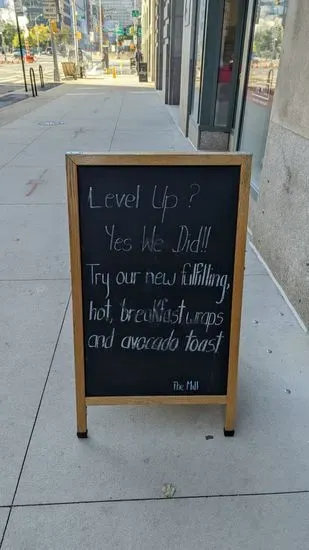 Level Up?
Yes We Did!!
Try our new fulfilling,
hot, breakfast wraps
and avocado toast
The Mill